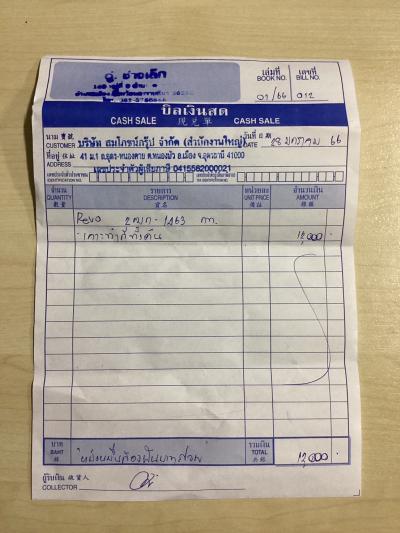 อู่ ช่างเล็ก
เล่มที่ เลขที่
BOOK NO. BILL NO.
01/66 012
บิลเงินสด
CASH SALE 現兑單 CASH SALE
นาม 寶號
CUSTOMER บริษัท สมโภชน์กรุ๊ป จำกัด (สำนักงานใหญ่) วันที่ 日期 DATE 28 มกราคม 66
ที่อยู่ 住址 41 ม.1 ถ.อุดร-หนองคาย ต.หนองบัว อ.เมือง จ.อุดรธานี 41000
ADDRESS เลขประจำตัวผู้เสียภาษี 0415562000021
จำนวน รายการ หน่วยละ จำนวนเงิน
QUANTITY DESCRIPTION UNIT PRICE AMOUNT
數量 貨名 價銀
Revo 2ฒก-1263 กท.
- เคาะทำสีทั้งคัน 12,000 -
บาท รวมเงิน
BAHT หนึ่งหมื่นสองพันบาทถ้วน TOTAL 12,000 -
銖 共銀
ผู้รับเงิน 收貨人
COLLECTOR